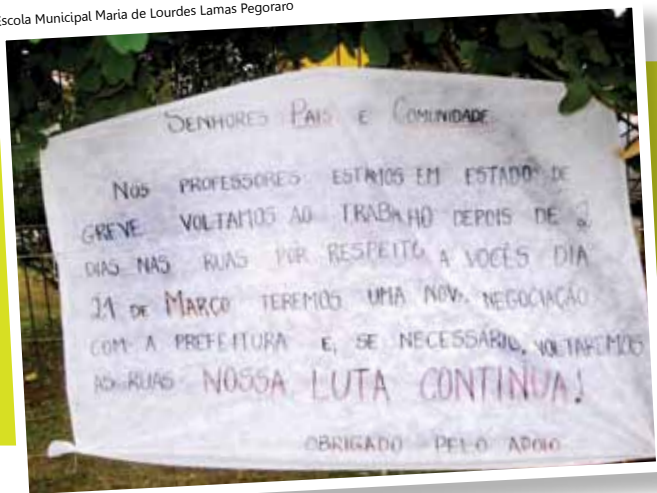 Escola Municipal Maria de Lourdes Lamas Pegoraro
SENHORES PAIS E COMUNIDADE
NÓS PROFESSORES ESTAMOS EM ESTADO DE
GREVE VOLTAMOS AO TRABALHO DEPOIS DE 2
DIAS NAS RUAS POR RESPEITO A VOCÊS DIA
21 DE MARÇO TEREMOS UMA NOVA NEGOCIAÇÃO
COM A PREFEITURA E, SE NECESSÁRIO, VOLTAREMOS
AS RUAS NOSSA LUTA CONTINUA!
OBRIGADO PELO APOIO